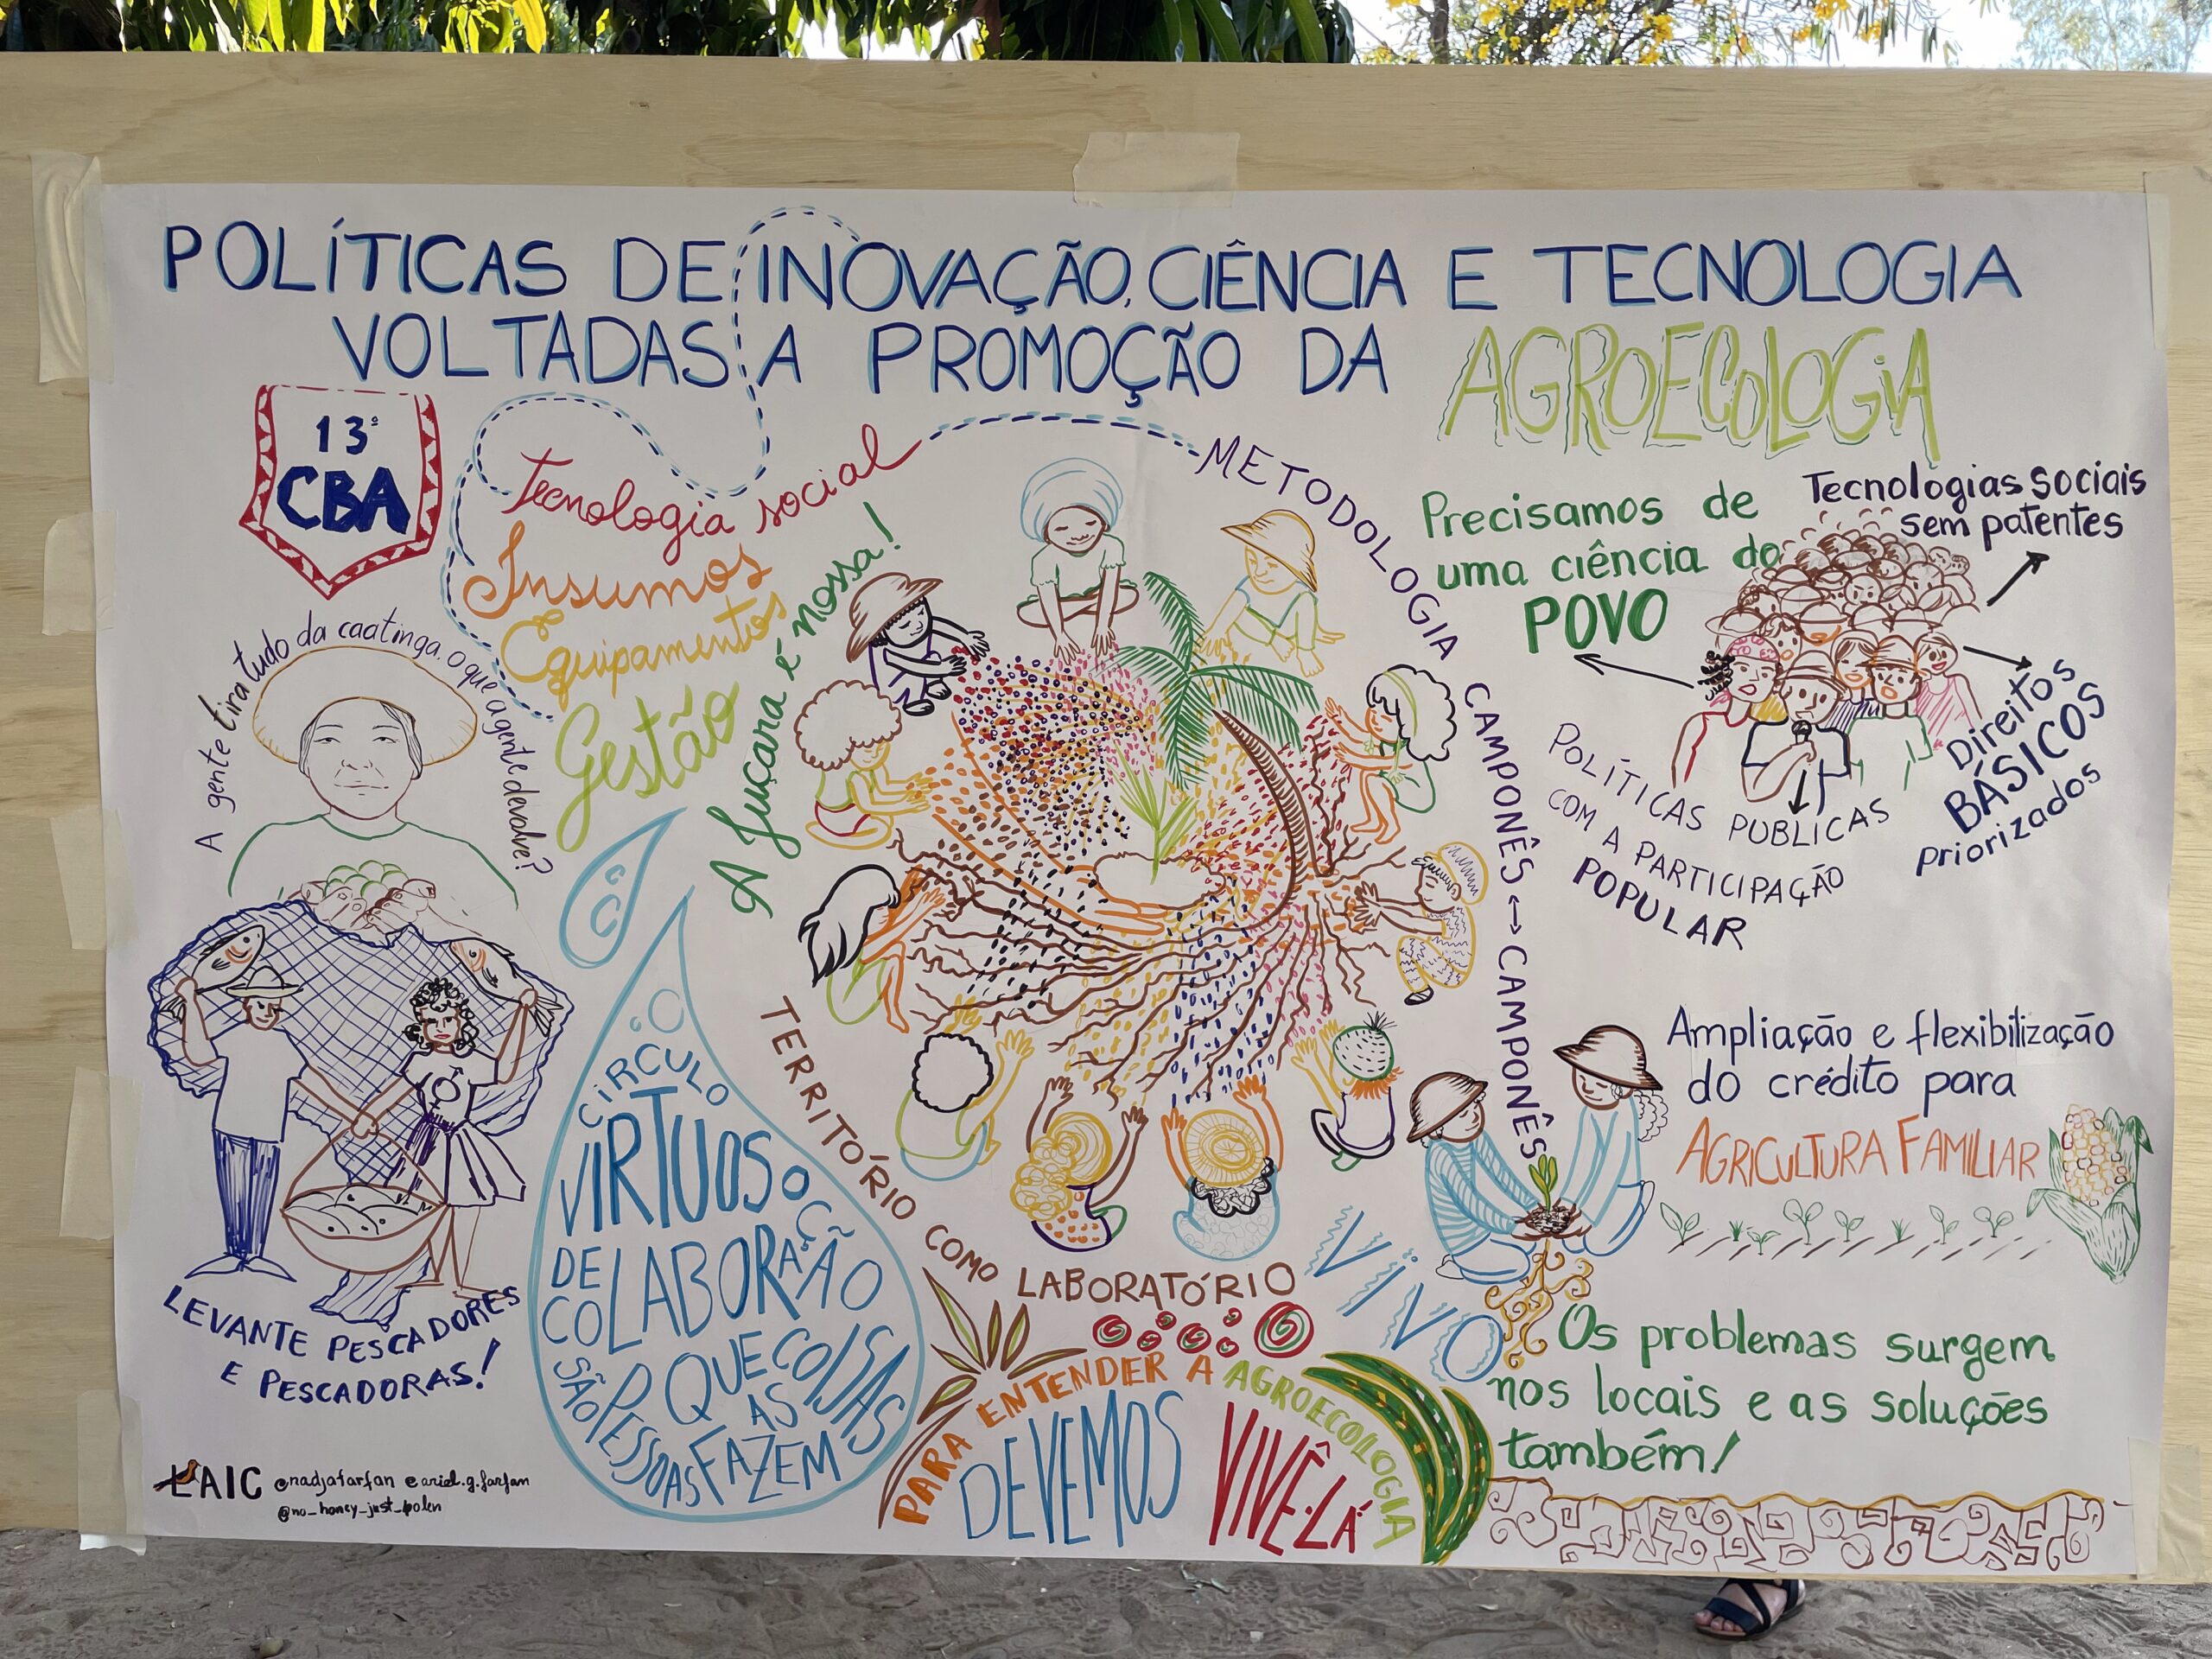 POLÍTICAS DE INOVAÇÃO, CIÊNCIA E TECNOLOGIA
VOLTADAS A PROMOÇÃO DA AGROECOLOGIA
13º
CBA
Tecnologia social
Insumos
Equipamentos
Gestão
A Juçara é nossa!
METODOLOGIA CAMPONÊS ↔ CAMPONÊS
Precisamos de
uma ciência do
POVO
Tecnologias sociais
sem patentes
Direitos
BÁSICOS
priorizados
POLÍTICAS PUBLICAS
COM A PARTICIPAÇÃO
POPULAR
A gente tira tudo da caatinga. o que a gente devolve?
LEVANTE PESCADORES
E PESCADORAS!
CÍRCULO
VIRTUOSO
DE COLABORAÇÃO
AÇÃO
SÃO PESSOAS QUE
AS COISAS
FAZEM
TERRITÓRIO COMO LABORATÓRIO
VIVO
Ampliação e flexibilização
do crédito para
AGRICULTURA FAMILIAR
Os problemas surgem
nos locais e as soluções
também!
PARA ENTENDER A AGROECOLOGIA
DEVEMOS VIVÊ-LÁ
LAIC @nadjafarfan @ariel.g.farfan
@no_honey_just_polen